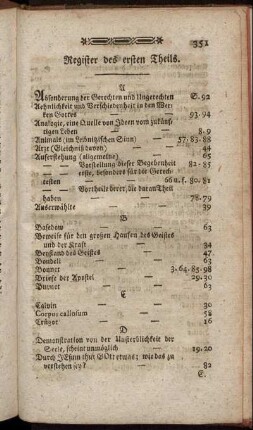 351
Register des ersten Theils.
A
Absonderung der Gerechten und Ungerechten S. 92
Aehnlichkeit und Verschiedenheit in den Wer-
ken Gottes 93. 94
Analogie, eine Quelle von Ideen vom zukünf-
tigen Leben 8. 9
Animals (im Leibnitzischen Sinn) 57. 83. 88
Arzt (Gleichniß davon) 44
Auferstehung (allgemeine) 65
Vorstellung dieser Begebenheit 82-85
erste, besonders für die Gerech-
testen 66 u. f. 80. 81
Vortheile derer, die daran Theil
haben 78. 79
Auserwählte 39
B
Basedow 63
Beweise für den großen Haufen des Geistes
und der Kraft 34
Beystand des Geistes 47
Bondeli 63
Bonnet 3. 64. 85. 98
Briefe der Apostel 29. 30
Duynet 63
C
Calvin 30
Corpus callosum 58
Crügot 16
D
Demonstration von der Unsterblichkeit der
Seele, scheint unmöglich 19. 20
Durch JEsum thut GOtt etwas; wie das zu
verstehen sey? 82
E.